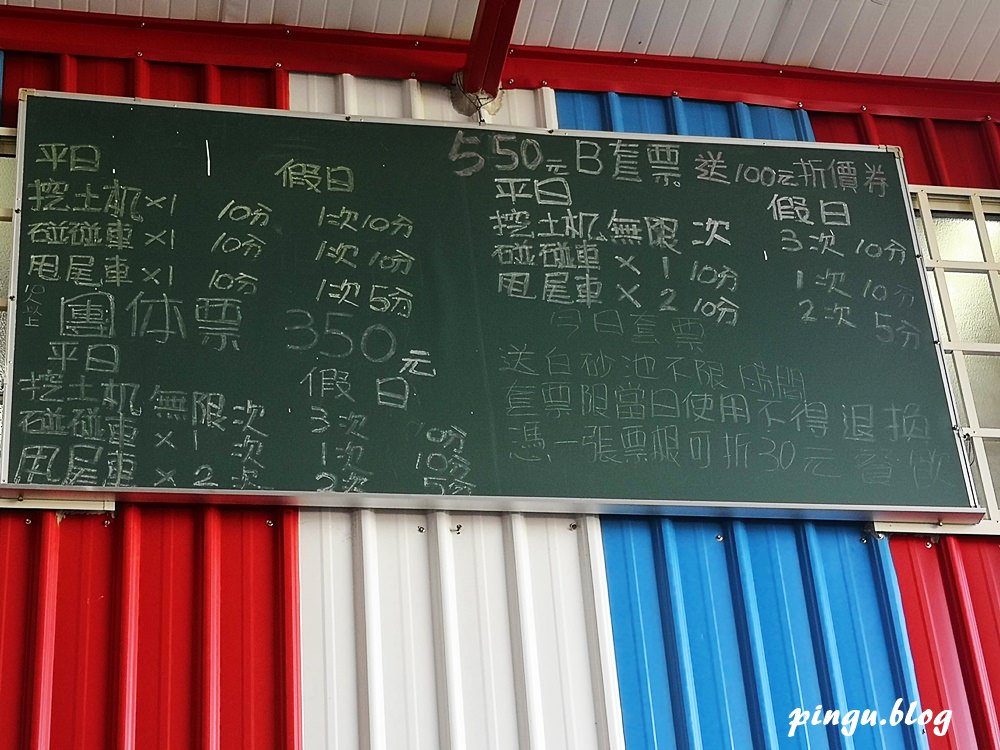 平日 假日
挖土机×1 10分 1次10分
碰碰車×1 10分 1次10分
甩尾車×1 10分 1次5分
10人以上
團体票 350元
平日 假日
挖土机 無限次 3次 10分
碰碰車 ×1次 1次 10分
甩尾車 ×2次 2次 5分
550元B套票 送100元折價券
平日 假日
挖土机 無限次 3次 10分
碰碰車 × 1 10分 1次 10分
甩尾車 × 2 10分 2次 5分
今日套票
送白砂池不限時間
套票限當日使用不得退換
憑一張票根可折30元 餐飲
pingu.blog